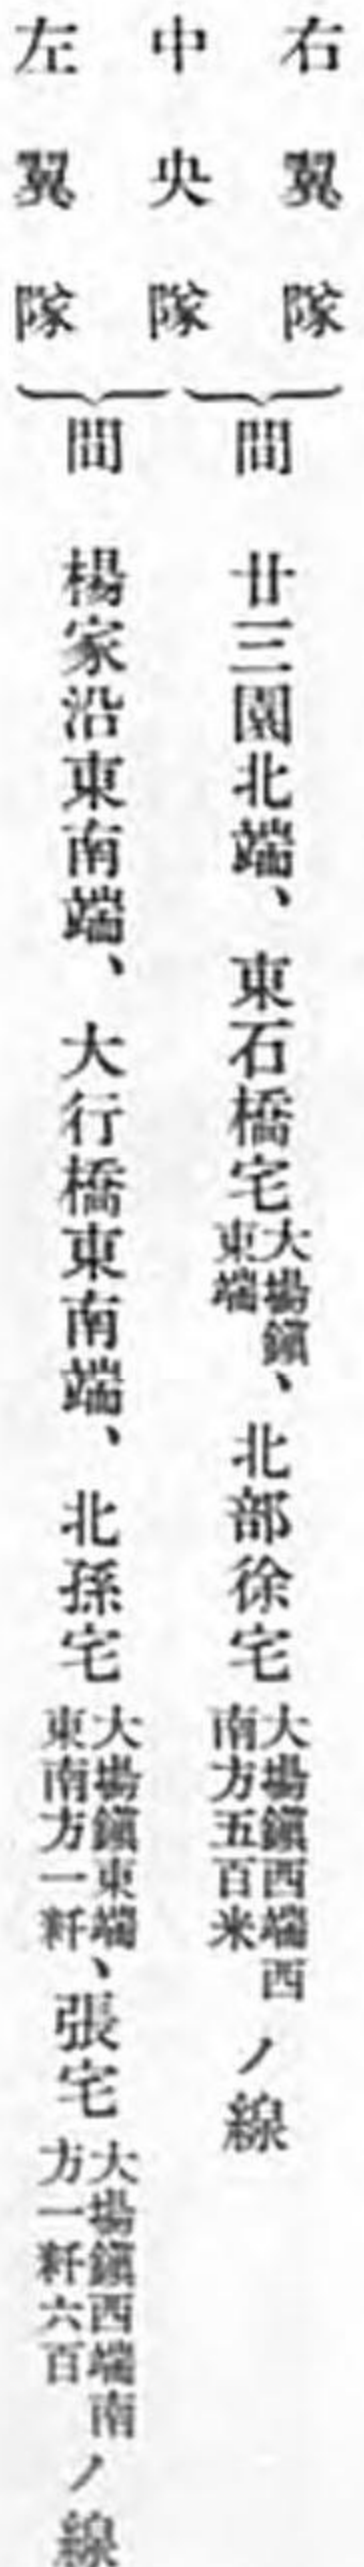 右翼隊
中央隊
左翼隊
間 廿三園北端、東石橋宅大場鎭東端、北部徐宅大場鎭西端西南方五百米ノ線
間 楊家沿東南端、大行橋東南端、北孫宅大場鎭東端東南方一粁、張宅大場鎭西端南方一粁六百ノ線